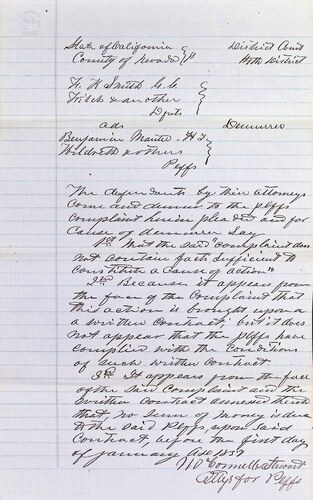 State of California } ss District Court
County of Nevada 14th District
H. K. Smith C. C.
& another
Defts
ads Demurrer
Benjamin H. T.
Hildreth & others
Plffs
The defendants by their Attorneys
Come and demur to the plffs
Complaint herein plead and for
Cause of demurrer Say
1st That the said "Complaint does
not contain facts sufficient to
constitute a cause of action"
2nd Because it appears from
the face of the Complaint that
this action is brought upon
a written contract, but it does
not appear that the plffs have
complied with the Conditions
of such written Contract
3rd It appears from the face
of the said Complaint and the
written Contract annexed thereto
that, no sum of money is due
to the said Plffs, upon said
Contract, before the first day
of January
& Stewart
Attys for Plffs